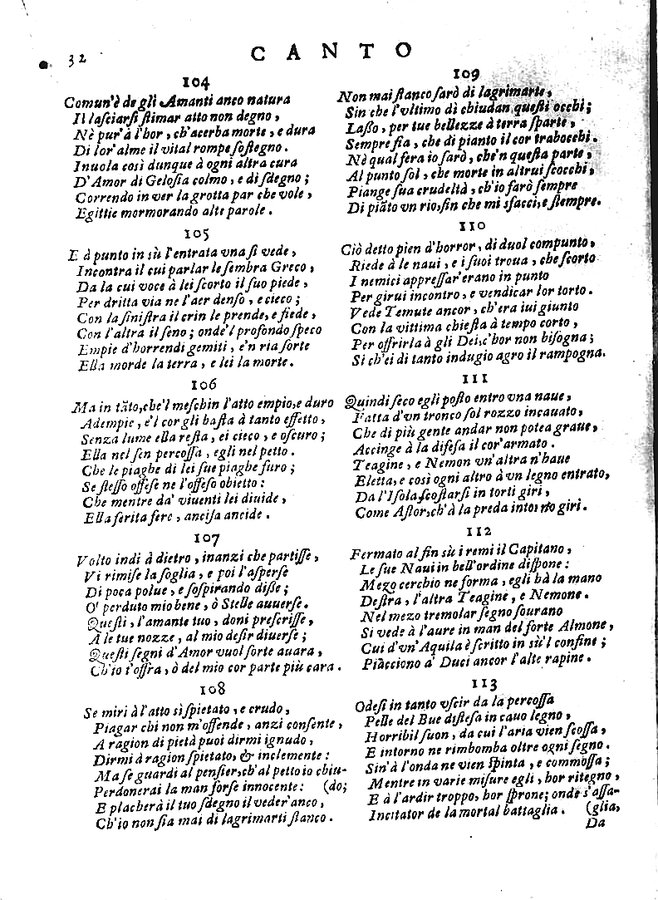 32
CANTO
104
Comun'è de gli Amanti anco natura
Il lasciarsi stimar atto non degno,
Nè pur' à l'hor, ch'acerba morte, e dura
Di lor' alme il vital rompe sostegno.
Inuola così dunque à ogni altra cura
D'Amor di Gelosia colmo, e di sdegno;
Correndo in ver la grotta par che vole,
Egittie mormorando alte parole.
105
E à punto in sù l'entrata vna si vede,
Incontra il cui parlar le sembra Greco,
Da la cui voce à lei scorto il suo piede,
Per dritta via ne l'aer denso, e cieco;
Con la sinistra il crin le prende, e fiede,
Con l'altra il seno; onde'l profondo speco
Empie d'horrendi gemiti, e'n ria sorte
Ella morde la terra, e lei la morte.
106
Ma in tāto, che'l meschin l'atto empio, e duro
Adempie, e'l cor gli basta à tanto effetto,
Senza lume ella resta, ei cieco, e oscuro;
Ella nel sen percossa, egli nel petto.
Che le piaghe di lei sue piaghe furo;
Se stesso offese ne l'offeso obietto:
Che mentre da' viuenti lei diuide,
Ella ferita fere, ancisa ancide.
107
Volto indi à dietro, inanzi che partisse,
Vi rimise la soglia, e poi l'asperse
Di poca polue, e sospirando disse;
O' perduto mio bene, ò Stelle auuerse.
Questi, l'amante tuo, doni prescrisse,
A le tue nozze, al mio desir diuerse;
Questi segni d'Amor vuol sorte auara,
Ch'io t'offra, ò del mio cor parte più cara.
108
Se miri à l'atto sì spietato, e crudo,
Piagar chi non m'offende, anzi consente,
A ragion di pietà puoi dirmi ignudo,
Dirmi à ragion spietato, & inclemente:
Ma se guardi al pensier, ch'al petto io chiu-
Perdonerai la man forse innocente: (do;
E placherà il tuo sdegno il veder'anco,
Ch'io non sia mai di lagrimarti stanco.
109
Non mai stanco sarò di lagrimarte,
Sin che l'vltimo dì chiudan questi occhi;
Lasso, per tue bellezze à terra sparte,
Sempre fia, che di pianto il cor trabocchi.
Nè qual fera io sarò, che'n questa parte,
Al punto sol, che morte in altrui scocchi,
Piange sua crudeltà, ch'io farò sempre
Di piāto vn rio, fin che mi sfacci, e stempre.
110
Ciò detto pien d'horror, di duol compunto,
Riede à le naui, e i suoi troua, che scorto
I nemici appressar' erano in punto
Per girui incontro, e vendicar lor torto.
Vede Temute ancor, ch'era iui giunto
Con la vittima chiesta à tempo corto,
Per offrirla à gli Dei, c'hor non bisogna;
Si ch'ei di tanto indugio agro il rampogna.
111
Quindi seco egli posto entro vna naue,
Fatta d'vn tronco sol rozzo incauato,
Che di più gente andar non potea graue,
Accinge à la difesa il cor'armato.
Teagine, e Nemon vn'altra n'haue
Eletta, e così ogni altro à vn legno entrato,
Da l'Isola scostarsi in torti giri,
Come Astor, ch'à la preda intorno giri.
112
Fermato al fin sù i remi il Capitano,
Le sue Naui in bell'ordine dispone:
Mezo cerchio ne forma, egli hà la mano
Destra, l'altra Teagine, e Nemone.
Nel mezo tremolar segno sourano
Si vede à l'aure in man del forte Almone,
Cui d'vn'Aquila è scritto in sù'l confine;
Piacciono a' Duci ancor l'alte rapine.
113
Odesi in tanto vscir da la percossa
Pelle del Bue distesa in cauo legno,
Horribil suon, da cui l'aria vien scossa,
E intorno ne rimbomba oltre ogni segno.
Sin'à l'onda ne vien spinta, e commossa;
Mentre in varie misure egli, hor ritegno,
E à l'ardir troppo, hor sprone; onde s'assa-
Incitator de la mortal battaglia. (glia,
Da